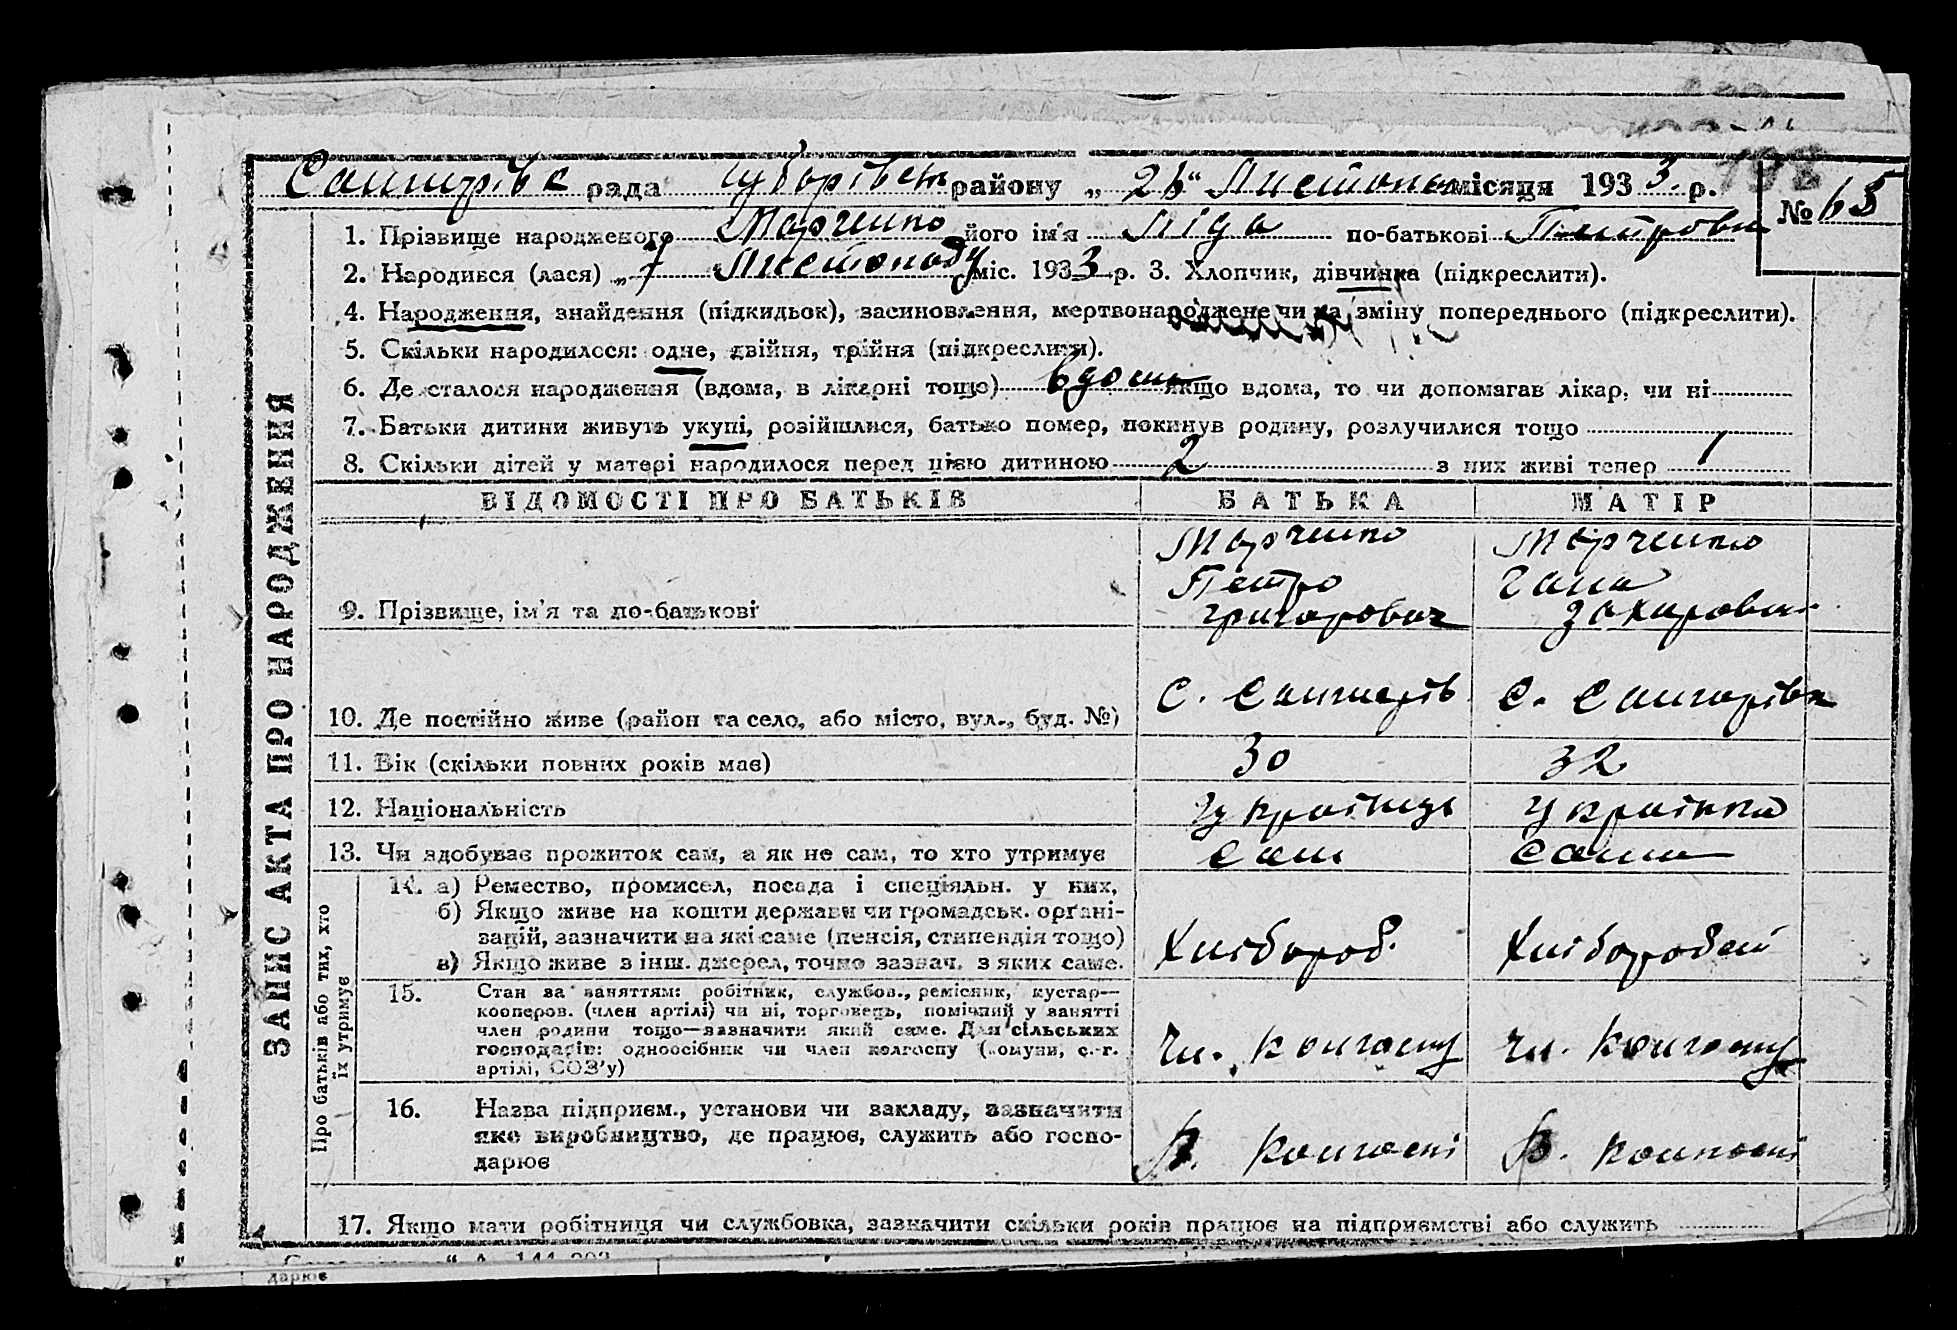 рада району „ 26“ Листопа місяця 1933 р.
№ 65
198
1. Прізвище народженого Марченко його ім'я Ліда по-батькові Петровна
2. Народився (лася) „ 7 “ Листопаду міс. 1933 р. 3. Хлопчик, дівчинка (підкреслити).
4. Народження, знайдення (підкидьок), засиновлення, мертвонароджене чи на зміну попереднього (підкреслити).
5. Скільки народилося: одне, двійня, трійня (підкреслити).
6. Де сталося народження (вдома, в лікарні тощо) вдома якщо вдома, то чи допомагав лікар, чи ні
7. Батьки дитини живуть укупі, розійшлися, батько помер, покинув родину, розлучилися тощо
8. Скільки дітей у матері народилося перед цією дитиною 2 з них живі тепер 1
ЗАПИС АКТА ПРО НАРОДЖЕННЯ
ВІДОМОСТІ ПРО БАТЬКІВ БАТЬКА МАТІР
Марченко Марченко
Петро Гана
9. Прізвище, ім'я та по-батькові Григорович Захаровна
10. Де постійно живе (район та село, або місто, вул., буд. №) с. с.
11. Вік (скільки повних років має) 30 32
12. Національність Українець Українка
13. Чи здобуває прожиток сам, а як не сам, то хто утримує Сам Сама
Про батьків або тих, хто їх утримує
14. а) Ремество, промисел, посада і спеціяльн. у них,
б) Якщо живе на кошти держави чи громадськ. органі-
зацій, зазначити на які саме (пенсія, стипендія тощо) Хлібороб
в) Якщо живе з інш. джерел, точно зазнач. з яких саме.
15. Стан за заняттям: робітник, службов., ремісник, кустар—
кооперов. (член артілі) чи ні, торговець, помічний у занятті
член родини тощо—зазначити який саме. Для сільських
господарів: одноосібник чи член колгоспу (комуни, с.-г. Чл. колгоспу Чл. колгоспу
артілі, СОЗ'у)
16. Назва підприєм., установи чи закладу, зазначити
яке виробництво, де працює, служить або госпо- В. колгоспі В. колгоспі
дарює
17. Якщо мати робітниця чи службовка, зазначити скільки років працює на підприємстві або служить
дарює